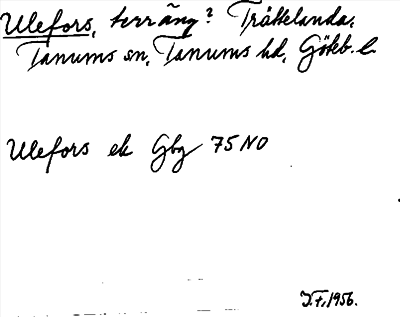 Ulefors, terräng? Trättelanda,
Tanums sn, Tanums hd, Göteb. l.
Ulefors ek Gbg 75 NO
1956.